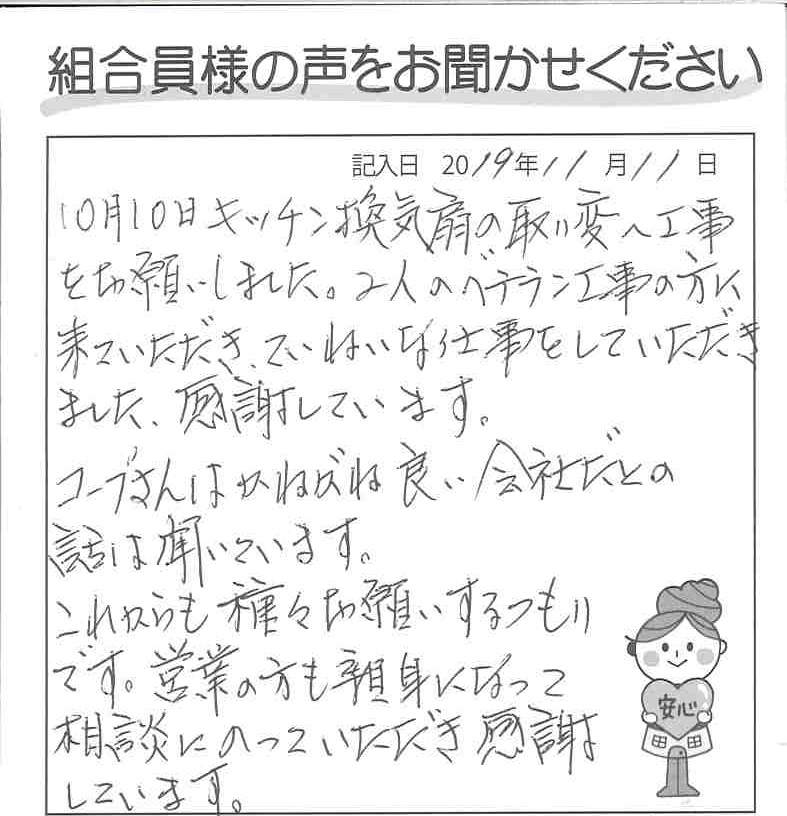 組合員様の声をお聞かせください
記入日 2019年11月11日
10月10日キッチン換気扇の取り変へ工事
をお願いしました。2人のベテラン工事の方に
来ていただき、ていねいな仕事をしていただき
ました、感謝しています。
コープさんはかねがね良い会社だとの
話は聞いています。
これからも種々お願いするつもり
です。営業の方も親身になって
相談にのっていただき感謝
しています。
安心